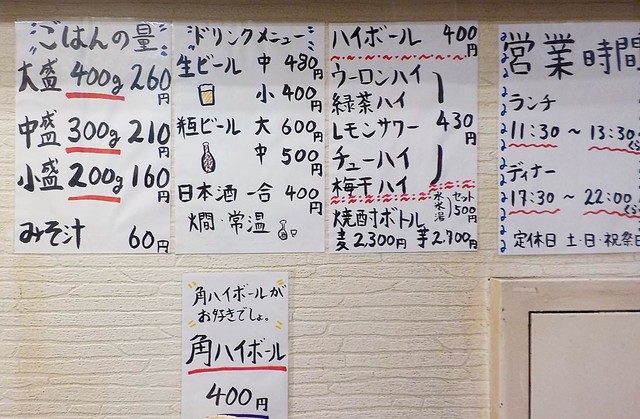 ごはんの量
大盛 400g 260円
中盛 300g 210円
小盛 200g 160円
みそ汁 60円
ドリンクメニュー
生ビール 中 480円
小 400円
瓶ビール 大 600円
中 500円
日本酒 一合 400円
燗・常温
ハイボール 400円
ウーロンハイ
緑茶ハイ
レモンサワー 430円
チューハイ
梅干ハイ
氷 水 湯 セット 500円
焼酎ボトル
麦 2,300円 芋 2,700円
営業時間
ランチ
11:30 ~ 13:30
ディナー
17:30 ~ 22:00
定休日 土・日・祝祭日
角ハイボールが
お好きでしょ。
角ハイボール
400円